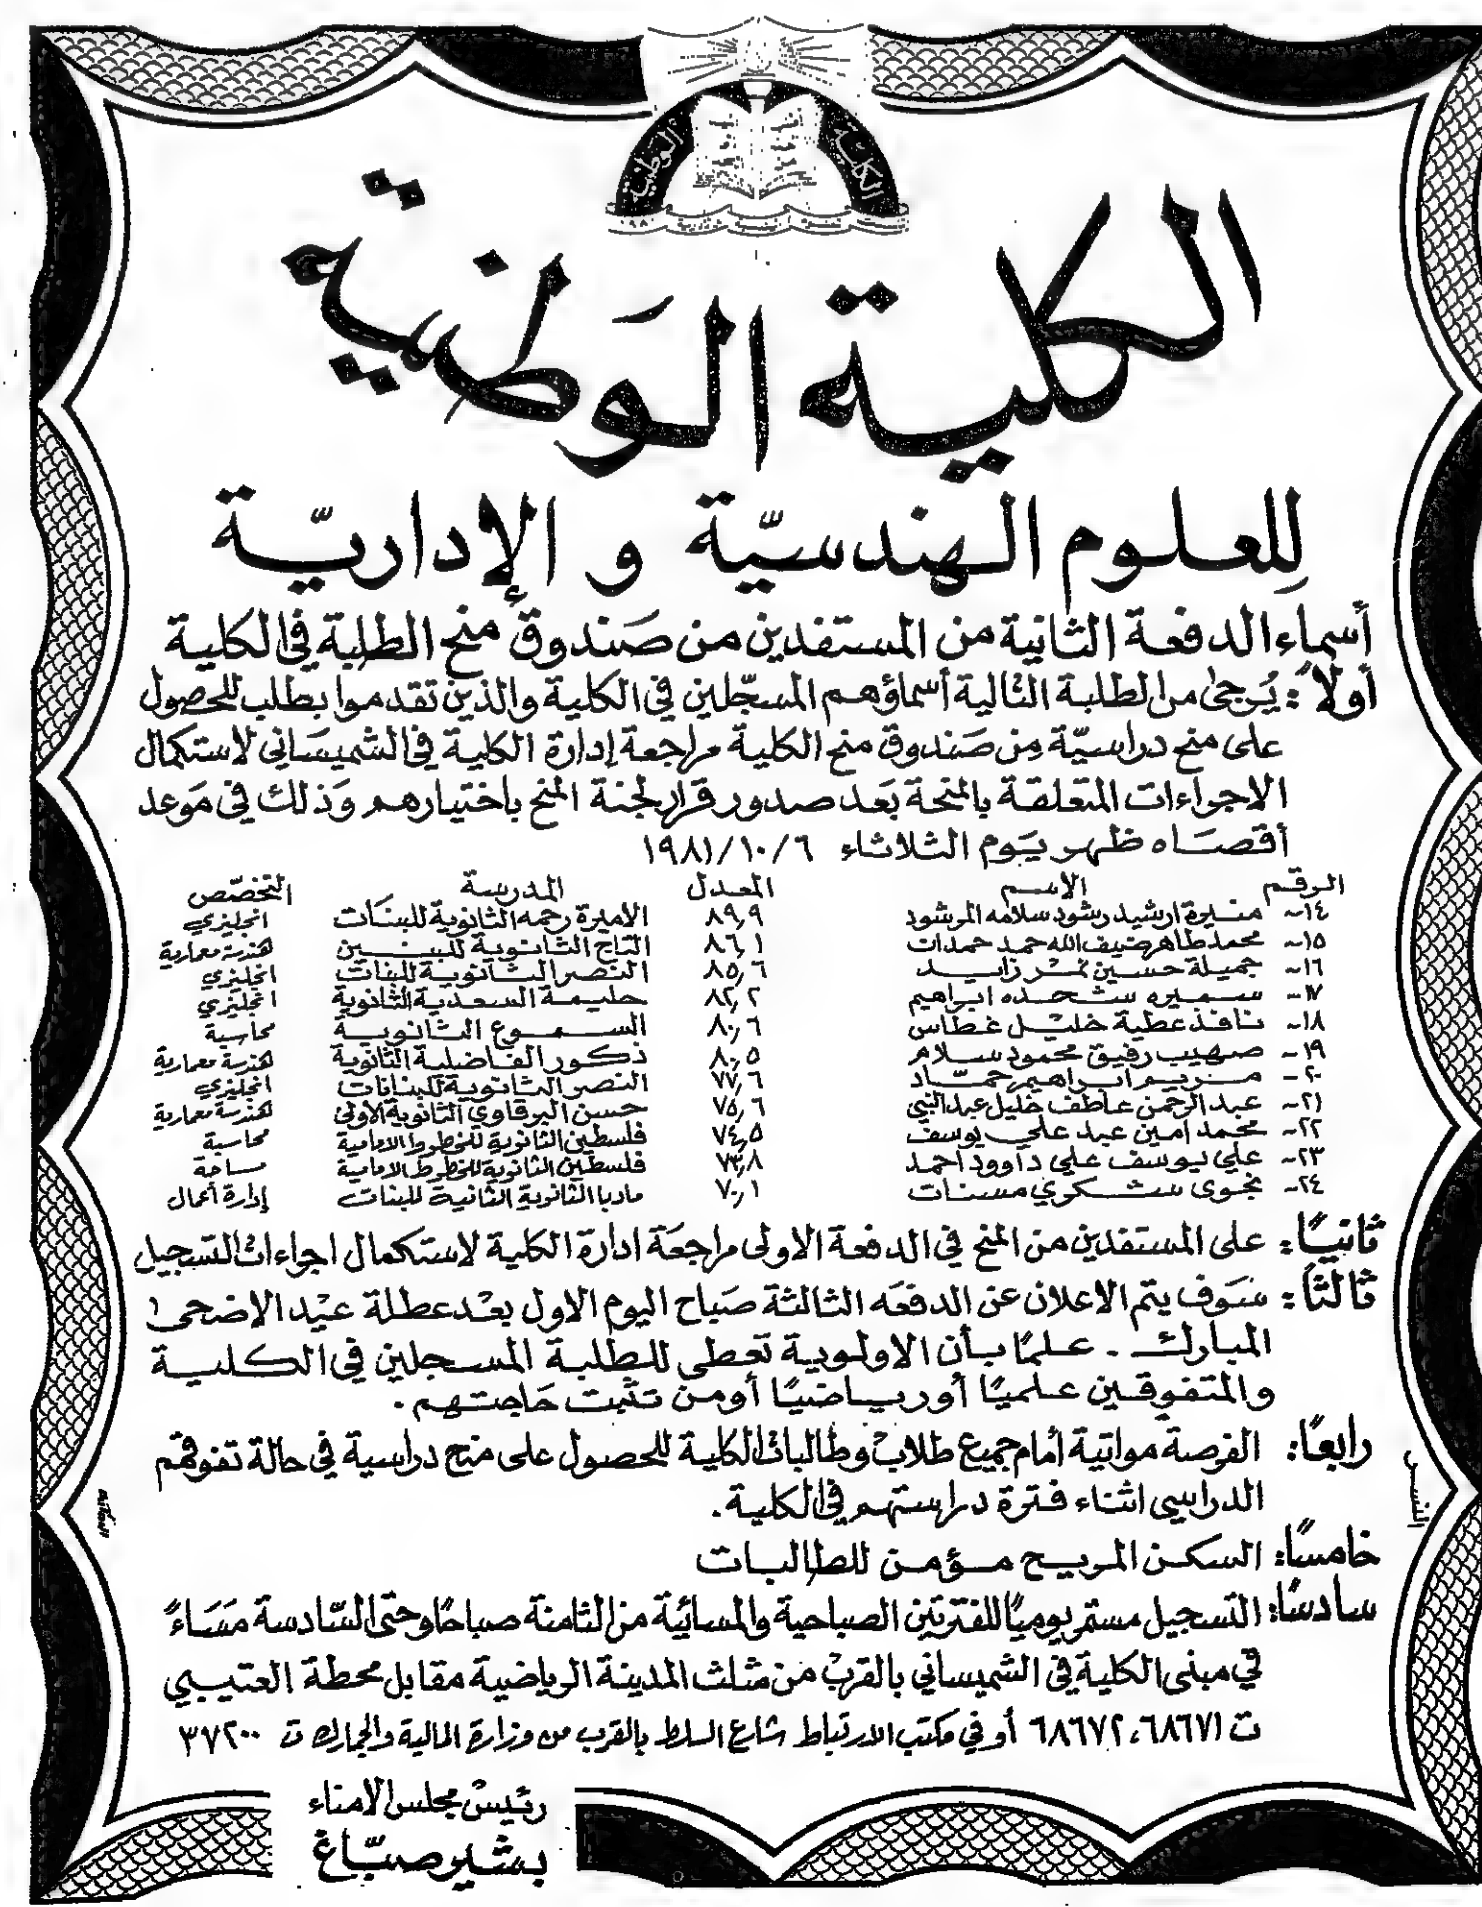 الكلية
الوطنية
١٩٨٠
الكلية الوَطنية
لِلعلوم الهندسيّة و الإداريّة
أسماء الدفعة الثانية من المستفدين من صَندوق منح الطلبة في الكلية
أولاً: يُرجىٰ من الطلبة التالية أسماؤهم المسجّلين في الكلية والذين تقدموا بطلب للحصول
على منح دراسيّة من صَندوق منح الكلية مراجعة إدارة الكلية في الشميسَاني لاستكمال
الاجراءات المتعلقة بالمنحة بَعد صدور قرار لجنة المنح باختيارهم وَذلك في مَوعد
أقصَاه ظهر يَوم الثلاثاء ١٩٨١/١٠/٦
الرقم الاسم المعدل المدرسة التخصّص
١٤- منيرة ارشيد رشود سلامه المرشود ٨٩,٩ الأميرة رحمه الثانوية للبنات انجليزي
١٥- محمد طاهر ضيف الله حمد حمدات ٨٦,١ التاج الثانوية للبنين هندسة معمارية
١٦- جميلة حسين نمر زايد ٨٥,٦ النصر الثانوية للبنات انجليزي
١٧- سميره شحده ابراهيم ٨٢,٢ حليمة السعدية الثانوية انجليزي
١٨- نافذ عطية خليل غطاس ٨٠,٦ السموع الثانوية محاسبة
١٩- صهيب رفيق محمود سلام ٨٠,٥ ذكور الفاضلية الثانوية هندسة معمارية
٢٠- مريم ابراهيم حمّاد ٧٧,٦ النصر الثانوية للبنانات انجليزي
٢١- عبد الرحمن عاطف خليل عبد النبي ٧٥,٦ حسن البرقاوي الثانوية الاولى هندسة معمارية
٢٢- محمد أمين عبد علي يوسف ٧٤,٥ فلسطين الثانوية للخطوط الامامية محاسبة
٢٣- علي يوسف علي داوود احمد ٧٣,٨ فلسطين الثانوية للخطوط الامامية مساحة
٢٤- نجوى شكري مسنات ٧٠,١ مادبا الثانوية الثانية للبنات إدارة أعمال
ثانيًا: على المستفدين من المنح في الدفعة الاولى مراجعَة ادارة الكلية لاستكمال اجراءات التسجيل
ثالثاً: سَوف يتم الاعلان عن الدفعَه الثالثة صَباح اليوم الاول بعْد عطلة عيْد الاضحىٰ
المبارك . علمًا بأن الاولوية تعطى للطلبة المسجلين في الكلية
والمتفوقين علميًا أو رياضيًا أو من تثبت حَاجتهم .
رابعًا: الفرصة مواتية أمام جميع طلاب وطالبات الكلية للحصول على منح دراسية في حالة تفوقهم
الدراسي اثناء فترة دراستهم في الكلية .
خامسًا: السكن المريح مؤمن للطالبات
سادسًا: التسجيل مستمر يوميًا للفترتين الصباحية والمسائية من الثامنة صباحًا وحتى السّادسة مَسَاءً
في مبنى الكلية في الشميساني بالقرب من مثلث المدينة الرياضية مقابل محطة العتيبي
ت ٦٨٦٧١، ٦٨٦٧٢ أو في مكتب الارتباط شارع السلط بالقرب من وزارة المالية والجمارك ت ٣٧٢٠٠
رئيس مجلس الامناء
بشير صبّاغ